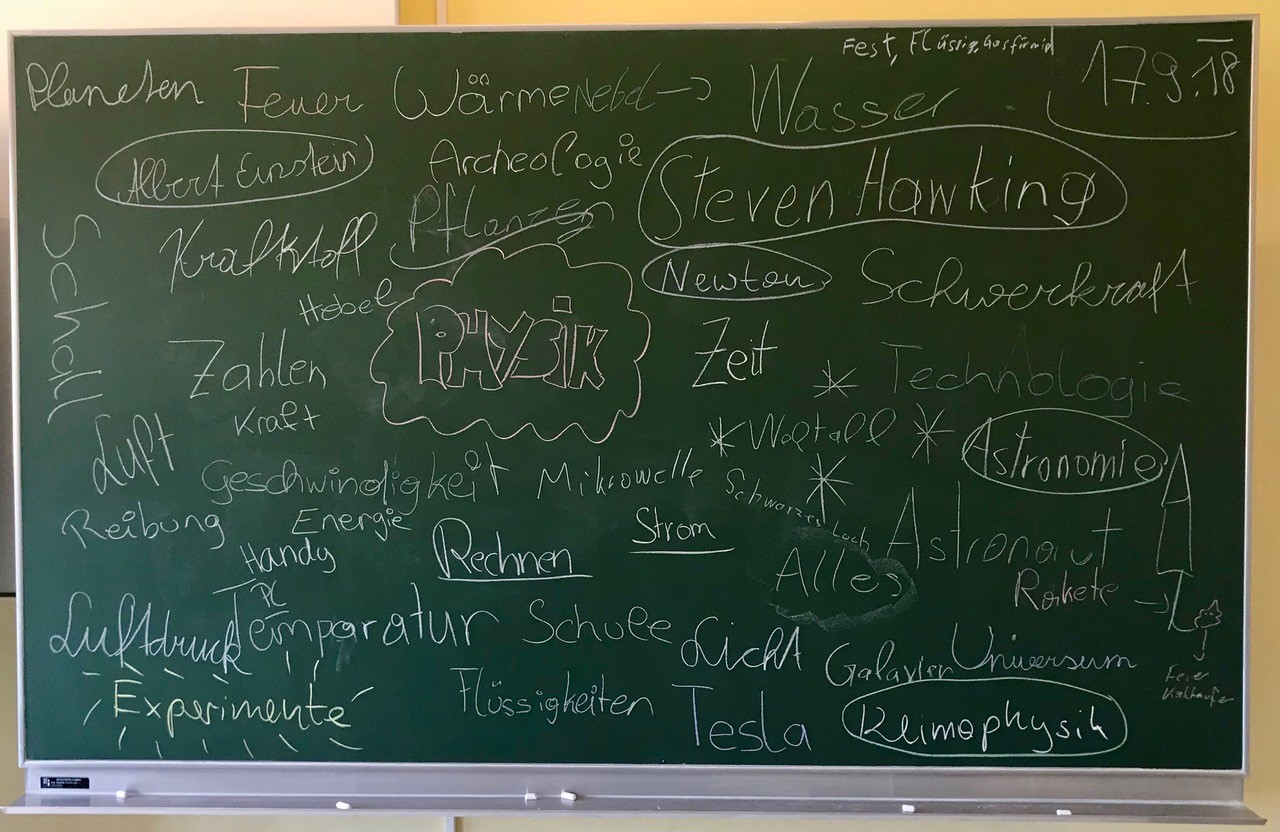 Fest, Flüssig, Gasförmig
17.9.18
Planeten Feuer Wärme Nebel → Wasser
Albert Einstein Archeologie Steven Hawking
Pflanzen
Schall Kraftstoff Newton Schwerkraft
Hebel
PHYSIK
Zahlen Zeit Technologie
Kraft
Luft Weltall Astronomie
Geschwindigkeit Mikrowelle Schwarzes Loch
Reibung Energie Strom Astronaut
Handy Rechnen Alles
PC Rakete →
Luftdruck Temparatur Schule Licht Galaxien Universum
Feuer
Experimente Flüssigkeiten Tesla Klimaphysik